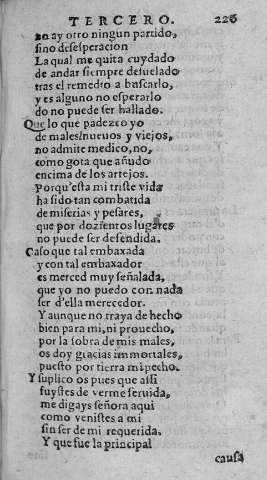 TERCERO. 226
no ay otro ningun partido,
sino desesperacion
La qual me quita cuydado
de andar siempre desuelado
tras el remedio a buscarlo,
y es alguno no esperarlo
do no puede ser hallado.
Que lo que padezco yo
de males/nueuos y viejos,
no admite medico, no,
como gota que añudo
encima de los artejos.
Porqu'esta mi triste vida
ha sido tan combatida
de miserias y pesares,
que por dozientos lugares
no puede ser defendida.
Caso que tal embaxada
y con tal embaxador
es merced muy señalada,
que yo no puedo con nada
ser d'ella merecedor.
Y aunque no traya de hecho
bien para mi, ni prouecho,
por la sobra de mis males,
os doy gracias immortales,
puesto por tierra mi pecho.
Y suplico os pues que assi
fuystes de verme seruida,
me digays señora aqui
como venistes a mi
sin ser de mi requerida.
Y que fue la principal
causa